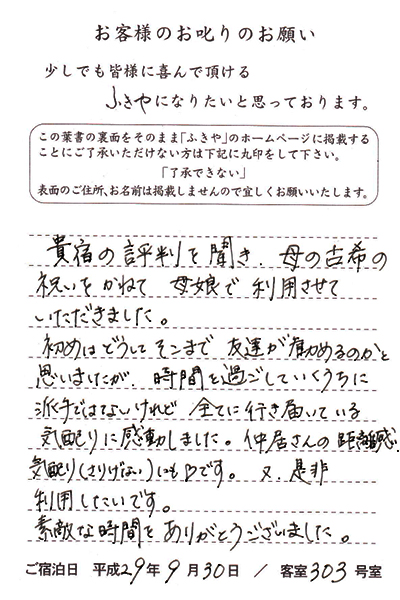 お客様のお叱りのお願い
少しでも皆様に喜んで頂ける
ふきやになりたいと思っております。
この葉書の裏面をそのまま「ふきや」のホームページに掲載する
ことにご了承いただけない方は下記に丸印をして下さい。
「了承できない」
表面のご住所、お名前は掲載しませんので宜しくお願いいたします。
貴宿の評判を聞き、母の古希の
祝いをかねて 母娘で利用させて
いただきました。
初めはどうしてそこまで 友達が薦めるのかと
思いましたが、時間を過ごしていくうちに
派手ではないけれど 全てに行き届いている
気配りに感動しました。仲居さんの距離感、
気配り(さりげない)にも♡です。又、是非
利用したいです。
素敵な時間をありがとうございました。
ご宿泊日 平成29年9月30日 / 客室303号室